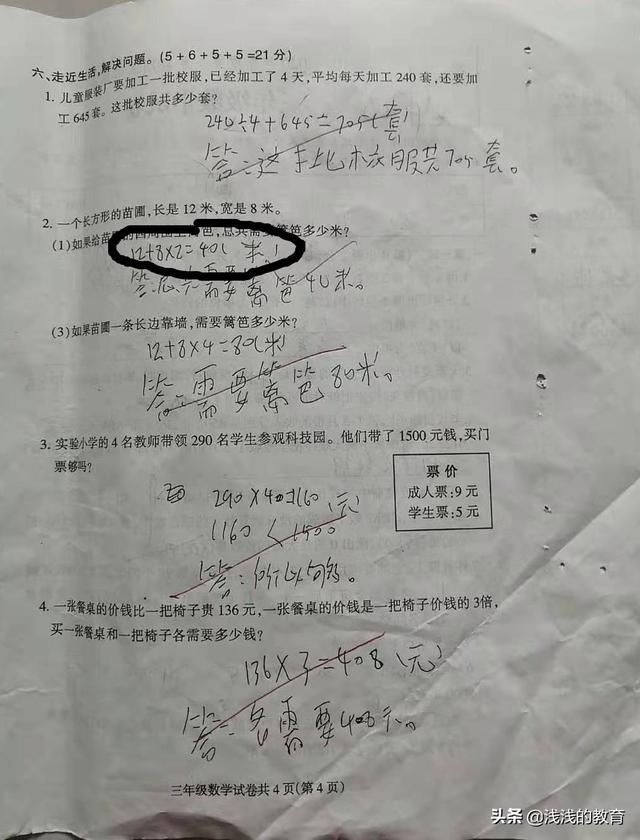 六、走近生活,解决问题。(5+6+5+5=21分)
1. 儿童服装厂要加工一批校服,已经加工了4天,平均每天加工240套,还要加
工645套。这批校服共多少套?
240÷4+645=705(套)
答:这批校服共705套。
2. 一个长方形的苗圃,长是12米,宽是8米。
(1)如果给苗圃的四周围上篱笆,总共需要篱笆多少米?
12+8×2=40(米)
答:总共需要篱笆40米。
(3)如果苗圃一条长边靠墙,需要篱笆多少米?
12+8×4=80(米)
答:需要篱笆80米。
3. 实验小学的4名教师带领290名学生参观科技园。他们带了1500元钱,买门
票够吗?
票价
成人票:9元
学生票:5元
290×4=1160(元)
1160<1500
答:所以够。
4. 一张餐桌的价钱比一把椅子贵136元,一张餐桌的价钱是一把椅子价钱的3倍,
买一张餐桌和一把椅子各需要多少钱?
136×3=408(元)
答:各需要408元。
三年级数学试卷共4页(第4页)
头条@浅浅的教育